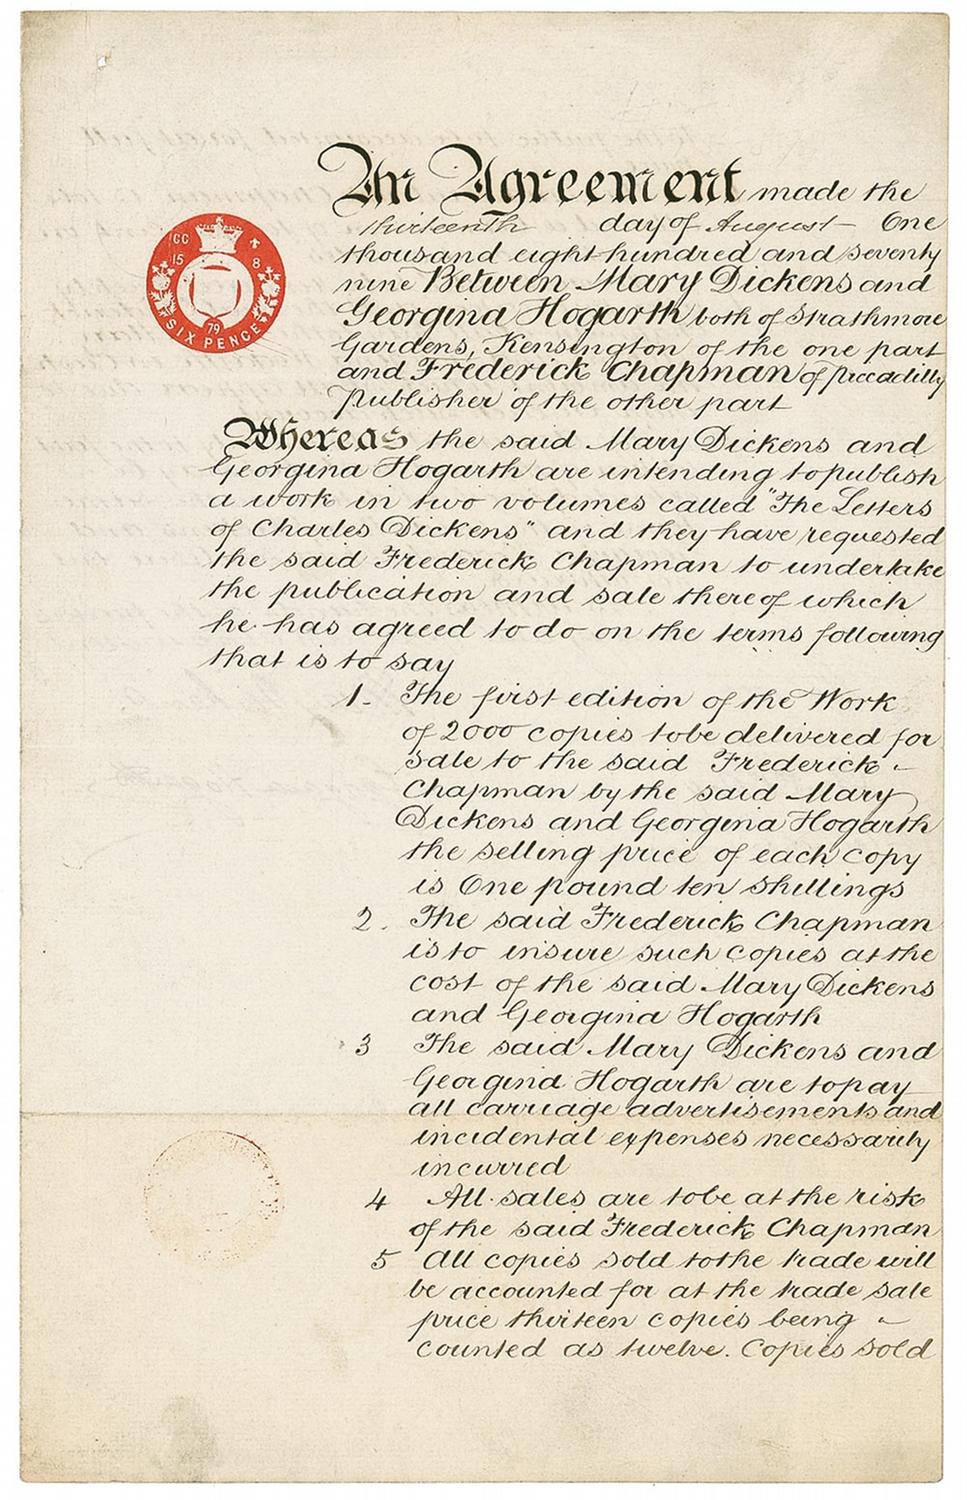 An Agreement made the
thirteenth day of August One
thousand eight hundred and seventy
nine Between Mary Dickens and
Georgina Hogarth both of Strathmore
Gardens, Kensington of the one part
and Frederick Chapman of Piccadilly
Publisher of the other part
Whereas the said Mary Dickens and
Georgina Hogarth are intending to publish
a work in two volumes called "The Letters
of Charles Dickens" and they have requested
the said Frederick Chapman to undertake
the publication and sale thereof which
he has agreed to do on the terms following
that is to say
1. The first edition of the Work
of 2000 copies to be delivered for
sale to the said Frederick
Chapman by the said Mary
Dickens and Georgina Hogarth
the selling price of each copy
is One pound ten shillings
2. The said Frederick Chapman
is to insure such copies at the
cost of the said Mary Dickens
and Georgina Hogarth
3 The said Mary Dickens and
Georgina Hogarth are to pay
all carriage advertisements and
incidental expenses necessarily
incurred
4 All sales are to be at the risk
of the said Frederick Chapman
5 All copies sold to the trade will
be accounted for at the trade sale
price thirteen copies being
counted as twelve. Copies sold
CC
15 8
79
SIX PENCE